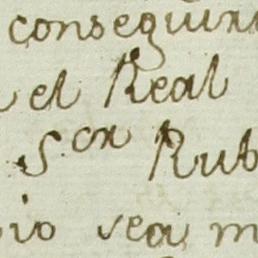 conseguir
el Real
S.or Rub
io sea m